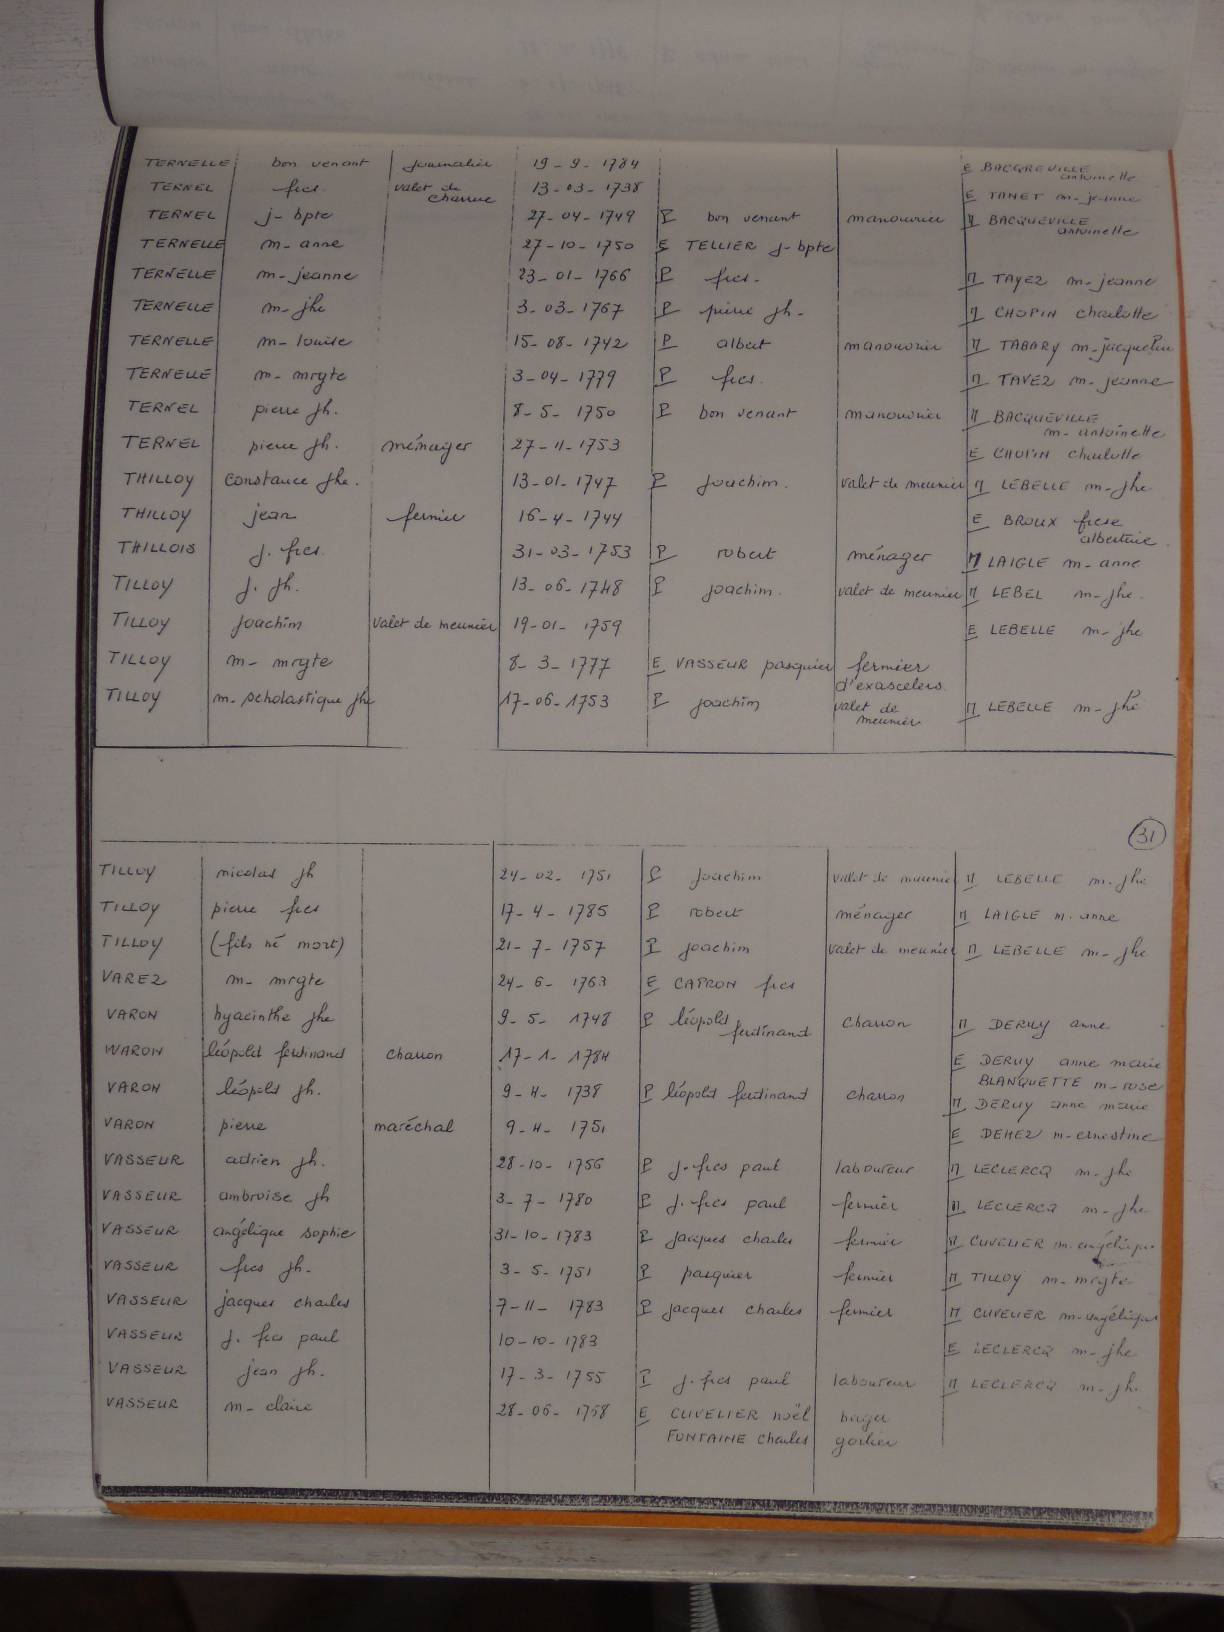 TERNELLE bon venant journalier 19-9-1784 E BACQREVILLE antoinette
TERNEL fres valet de charrue 13-03-1738 E TANET m-jeanne
TERNEL j-bpte 27-04-1749 P bon venant manouvrier M BACQUEVILLE antoinette
TERNELLE m-anne 27-10-1750 E TELLIER j-bpte
TERNELLE m-jeanne 23-01-1766 P fres. M TAYEZ m-jeanne
TERNELLE m-jhe 3-03-1767 P pierre jh- M CHOPIN charlotte
TERNELLE m-louise 15-08-1742 P albert manouvrier M TABARY m-jacqueline
TERNELLE m-mrgte 3-04-1779 P fres. M TAVEZ m-jeanne
TERNEL pierre jh. 8-5-1750 P bon venant manouvrier M BACQUEVILLE m-antoinette
TERNEL pierre jh. ménager 27-11-1753 E CHOPIN charlotte
THILLOY constance jhe. 13-01-1747 P joachim. valet de meunier M LEBELLE m-jhe
THILLOY jean fermier 16-4-1744 E BROUX frese albertine
THILLOIS j. fres. 31-03-1753 P robert ménager M LAIGLE m-anne
TILLOY j. jh. 13-06-1748 P joachim. valet de meunier M LEBEL m-jhe.
TILLOY joachim valet de meunier 19-01-1759 E LEBELLE m-jhe
TILLOY m-mrgte 8-3-1777 E VASSEUR pasquier fermier d'exascelers
TILLOY m-scholastique jhe 17-06-1753 P joachim valet de meunier M LEBELLE m-jhe
31
TILLOY nicolas jh 24-02-1751 P joachim valet de meunier M LEBELLE m-jhe
TILLOY pierre fres 17-4-1785 P robert ménager M LAIGLE m-anne
TILLOY (fils né mort) 21-7-1757 P joachim valet de meunier M LEBELLE m-jhe
VAREZ m-mrgte 24-6-1763 E CAPRON fres
VARON hyacinthe jhe 9-5-1748 P léopold ferdinand charron M DERUY anne
WARON léopold ferdinand charron 17-1-1784 E DERUY anne marie BLANQUETTE m-rose
VARON léopold jh. 9-4-1738 P léopold ferdinand charron M DERUY anne marie
VARON pierre maréchal 9-4-1751 E DEHEZ m-ernestine
VASSEUR adrien jh. 28-10-1756 P j-fres paul laboureur M LECLERCQ m-jhe
VASSEUR ambroise jh 3-7-1780 P j.fres paul fermier M LECLERCQ m-jhe
VASSEUR angélique sophie 31-10-1783 P jacques charles fermier M CUVELIER m.angélique
VASSEUR fres jh- 3-5-1751 P pasquier fermier M TILLOY m-mrgte
VASSEUR jacques charles 7-11-1783 P jacques charles fermier M CUVELIER m-angélique
VASSEUR j. fres paul 10-10-1783 E LECLERCQ m-jhe
VASSEUR jean jh. 17-3-1755 P j.fres paul laboureur M LECLERCQ m-jh.
VASSEUR m-claire 28-06-1758 E CUVELIER noël berger
FONTAINE charles gorlier